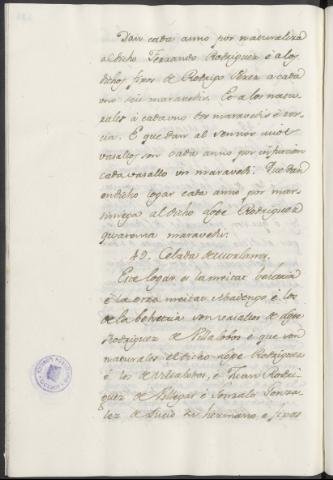 Dan cada anno por naturaleza
al dicho Ferrando Rodriguez é a los
dichos fixos de Rodrigo Perez a cada
uno seis maravedis. E a los natu-
rales a cada uno dos maravedis é ter-
cia. E que dan al sennor cuios
vasallos son cada anno por infurcion
cada vasallo un maravedi. Que dan
en dicho logar cada anno por mar-
tiniega al dicho Lope Rodriguez
quarenta maravedis.
49. Celada de
Este logar es la meitat behetria
é la otra meitat Abadengo, é los
de la behetria son vasallos de Lope
Rodriguez de Villalobos é que son
naturales el dicho Lope Rodriguez
é los de Villalobos, é Juan Rodri-
guez de Villegas é Gonzalo Gonza-
lez de Lucio su hermano é fixos